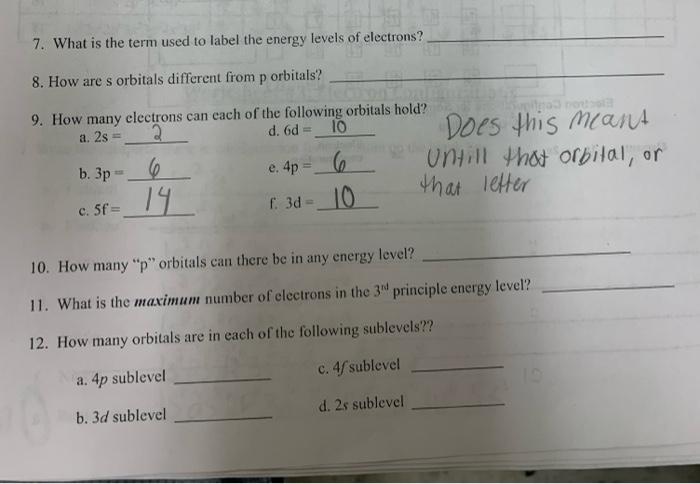 7. What is the term used to label the energy levels of electrons?
8. How are s orbitals different from p orbitals?
9. How many electrons can each of the following orbitals hold?
a. 2s = 2 d. 6d = 10
b. 3p = 6 e. 4p = 6
c. 5f = 14 f. 3d = 10
Does this meant
Untill that orbital, or
that letter
10. How many "p" orbitals can there be in any energy level?
11. What is the maximum number of electrons in the 3rd principle energy level?
12. How many orbitals are in each of the following sublevels??
a. 4p sublevel c. 4f sublevel
b. 3d sublevel d. 2s sublevel